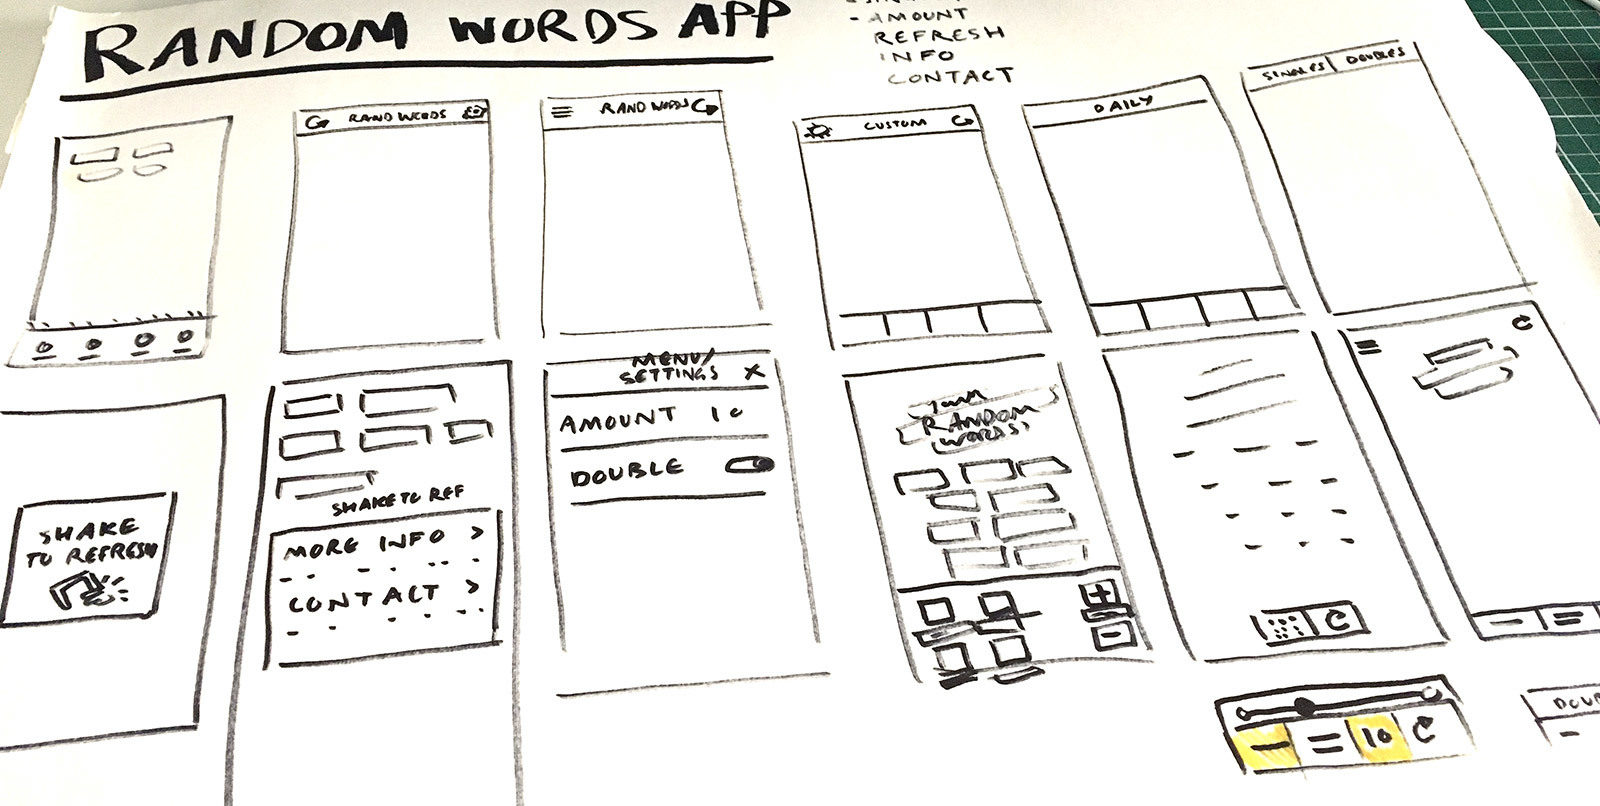 RANDOM WORDS APP
- AMOUNT
REFRESH
INFO
CONTACT
RAND WORDS
RAND WORDS
CUSTOM
DAILY
SINGLES DOUBLES
SHAKE
TO REFRESH
SHAKE TO REF
MORE INFO >
CONTACT >
MENU/
SETTINGS X
AMOUNT 10
DOUBLE
RANDOM
WORDS
+
-
10
DOUB